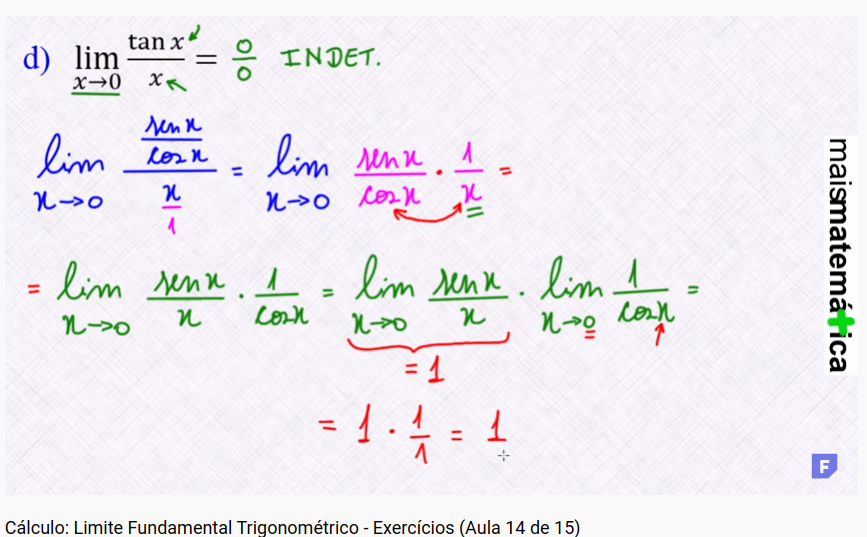 d) lim x→0 tan x / x = 0/0 INDET.
lim x→0 (sen x / cos x) / (x / 1) = lim x→0 sen x / cos x · 1 / x =
= lim x→0 sen x / x · 1 / cos x = lim x→0 sen x / x · lim x→0 1 / cos x =
= 1
= 1 · 1/1 = 1
maismatemática
F
Cálculo: Limite Fundamental Trigonométrico - Exercícios (Aula 14 de 15)